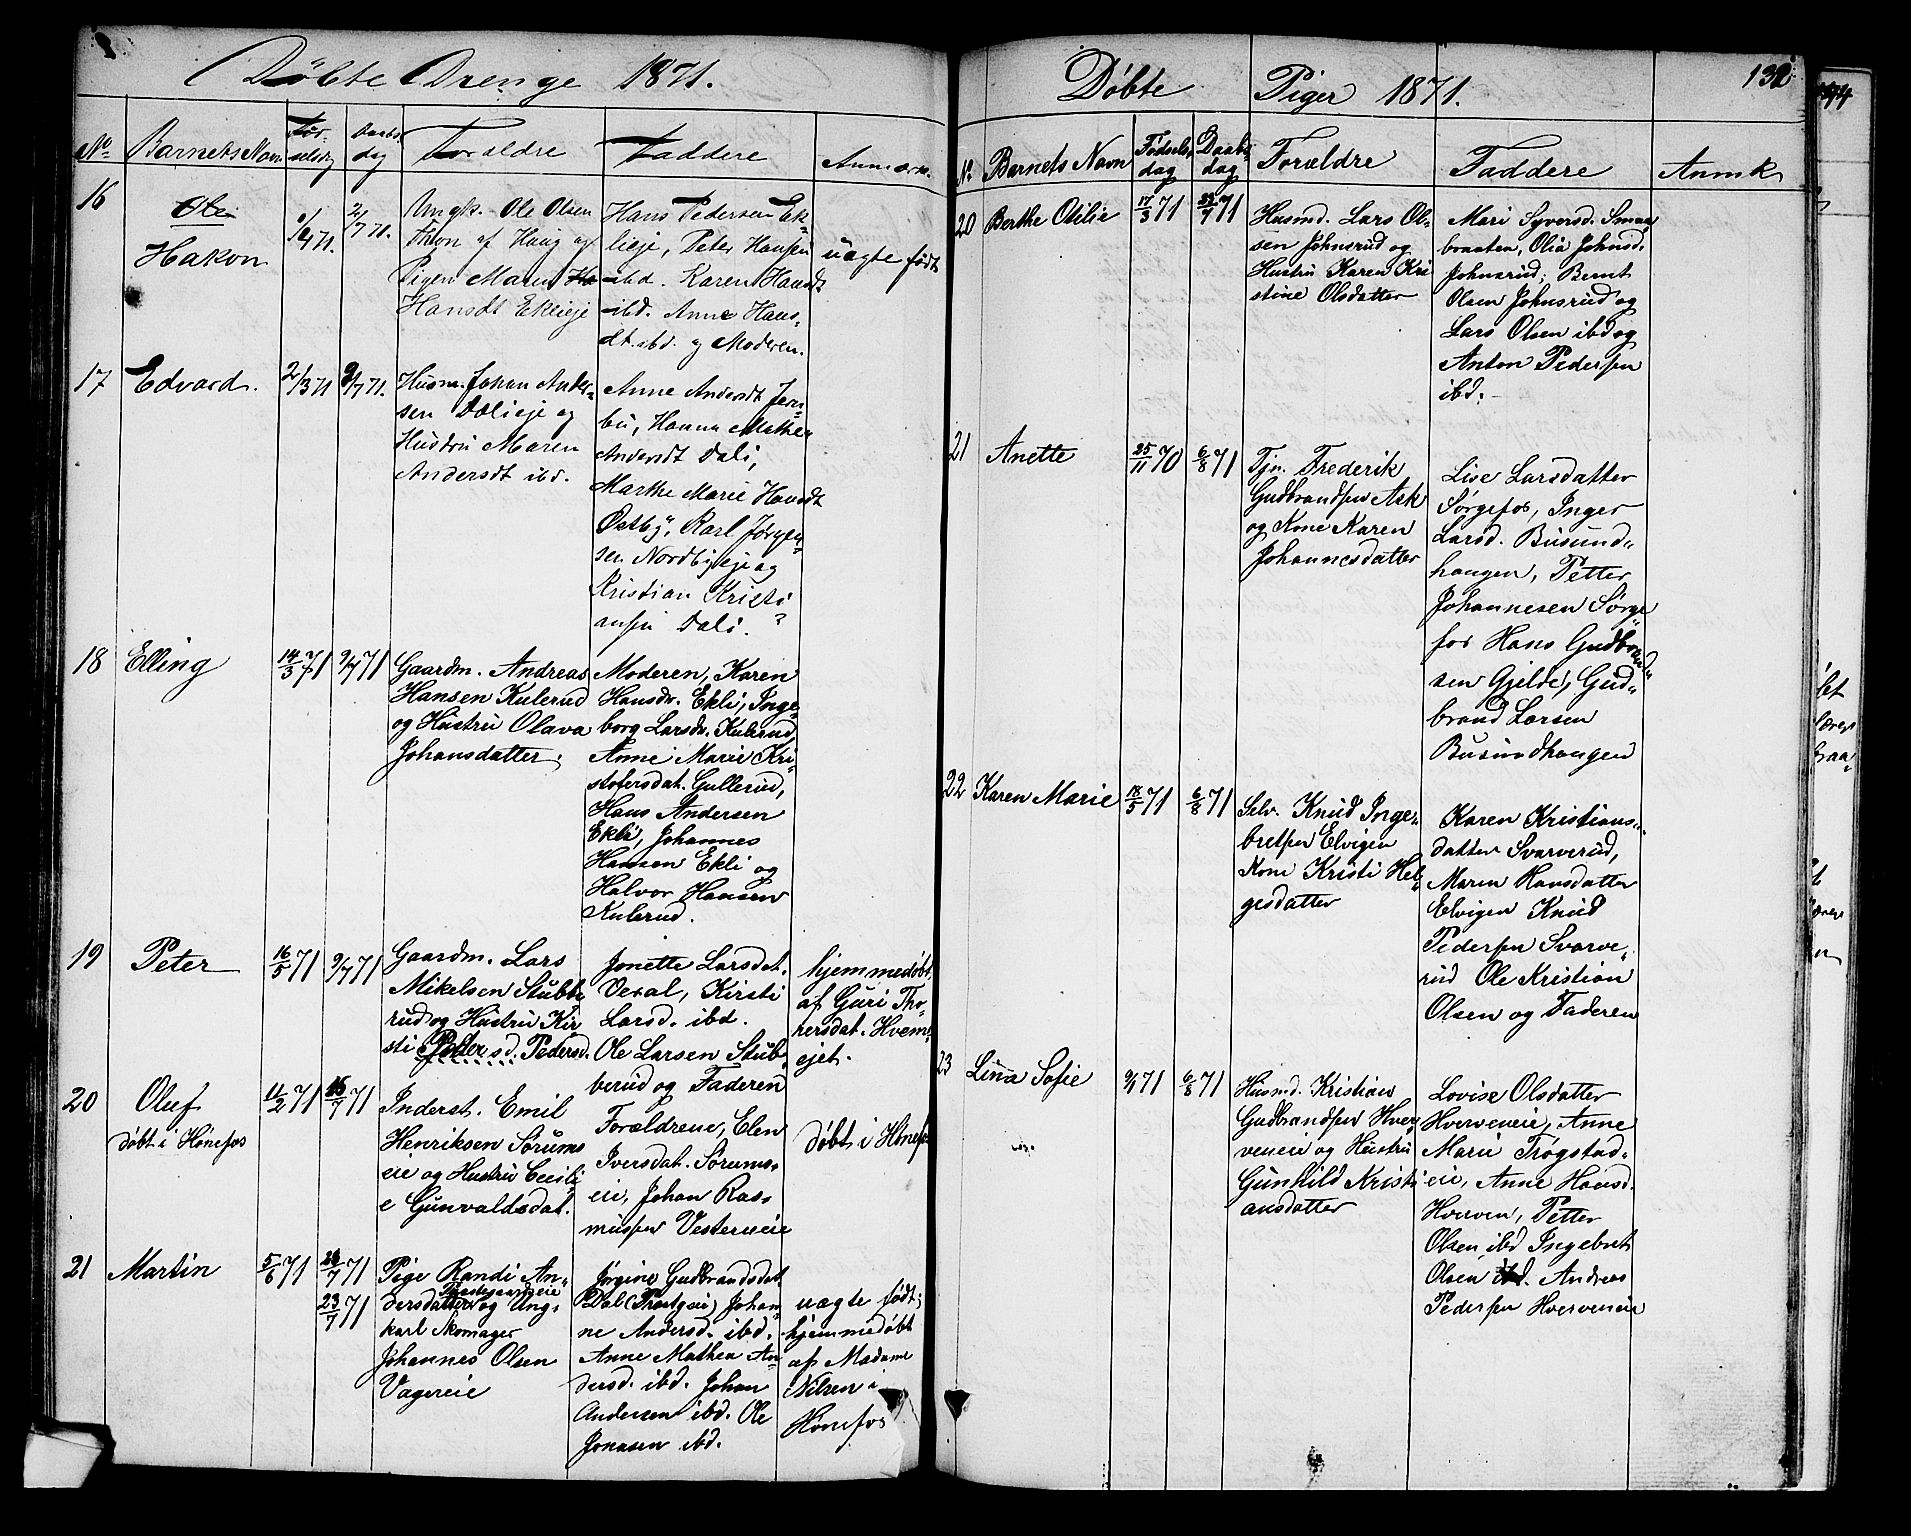 Døbte Drenge 1871.
No. Barnets Navn Fød-selsdg Daabsdg Forældre Faddere Anmærk.
16
Ole
Hakon
71.
2/7 71.
Ungk. Ole Olsen
Thron af Haug og
Pigen Maren Ha
Hansdt Eklieje
Hans Pedersen Ek-
lieje, Peter Hansen
ibd. Karen Hansdt
ibd. Anne Hans-
dt. ibd. og Moderen.
uægte født
17
Edvard.
2/3 71
9/7 71.
Husm. Johan Ander-
sen Dælieje og
Hustru Maren
Andersdt ibd.
Anne Andersdt Jern-
bu, Hanna Mathea
Andersdt Dali,
Marthe Marie Hansdt
Østby, Karl Jørgen-
sen Nordbyeje og
Kristian Kristi
ansen Dali. ?
18
Elling
14/3 71
9/7 71
Gaardm. Andreas
Hansen Kulerud
og Hustru Olava
Johansdatter.
Moderen, Karen
Hansdr. Ekli, Inge-
borg Larsdr. Kulerud,
Anne Marie Kri-
stofersdat. Gullerud,
Hans Andersen
Ekli, Johannes
Hansen Ekli og
Halvor Hansen
Kulerud.
19
Peter
16/5 71
9/7 71
Gaardm. Lars
Mikelsen Stubbe
rud og Hustru Kir
sti Pettersd. Pedersd.
Jonette Larsdat.
Veral, Kirsti
Larsd. ibd.
Ole Larsen Stub-
berud og Faderen
hjemmedøbt
af Guri Tho-
rersdat. Hvem-
ejet.
20
Oluf
døbt i Hønefos
11/2 71
16/7 71
Inderst. Emil
Henriksen Sørums
eie og Hustru Cecili
e Gunvaldsdat.
Forældrene, Elen
Iversdat. Sørums-
eie, Johan Ras-
musen Vesterneie
døbt i Hønefos
21
Martin
5/6 71
71
23/7 71
Pige Randi An-
dersdatter og Ung-
karl Skomager
Johannes Olsen
Vagereie
Jørgine Gudbrandsdat
Dal (Præstgeie) Johan
ne Andersd. ibd.
Anne Mathea An-
dersd. ibd. Johan
Andersen ibd. Ole
Jonasen ibd.
uægte født;
hjemmedøbt
af Madame
Nilsen i
Hønefos
Døbte Piger 1871.
132
No. Barnets Navn Fødsels-dag Daabs-dag Forældre Faddere Anmk
20
Berthe Otilie
17/3 71
71
Husmd. Lars Ol-
sen Johnsrud og
Hustru Karen Kri
stine Olsdatter
Mari Syversd. Smaa-
braaten, Olia Johnsd.
Johnsrud; Bernt
Olsen Johnsrud og
Lars Olsen ibd og
Anton Pedersen
ibd.
21
Anette
25/11 70
6/8 71
Tjn. Frederik
Gudbrandsen Ask
og Kone Karen
Johannesdatter
Lise Larsdatter
Sørgefos, Inger
Larsd. Busund-
haugen, Petter
Johannesen Sørge
fos Hans Gudbrand
sen Gjelde, Gud-
brand Larsen
Busundhaugen
22
Karen Marie
18/5 71
6/8 71
Selv. Knud Inge-
bretsen Elvigen
Kone Kristi Hel-
gesdatter
Karen Kristians-
datter Svarverud,
Maren Hansdatter
Elvigen Knud
Pedersen Svarve-
rud Ole Kristian
Olsen og Faderen
23
Lina Sofie
71
6/8 71
Husmd. Kristian
Gudbrandsen Hver-
veneie og Hustru
Gunhild Kristi
ansdatter
Lovise Olsdatter
Hverveneie, Anne
Marie Trøgstad-
eie, Anne Hansd.
Hverven, Petter
Olsen ibd Ingebret
Olsen ibd. Andreas
Pedersen Hverveneie